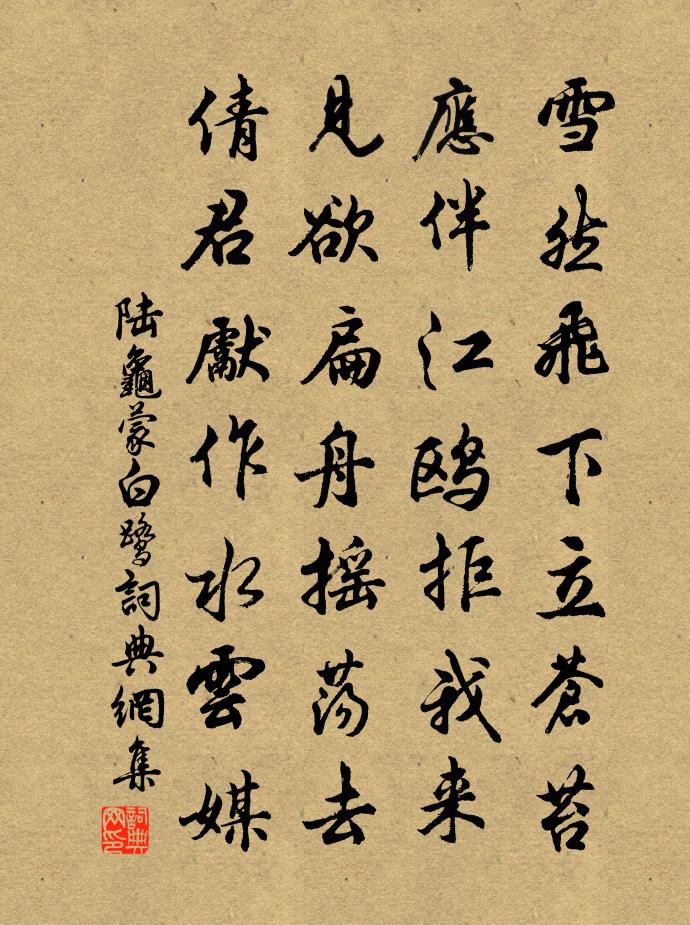 雪然飛下立蒼苔
應伴江鸥拒我来
見欲扁舟摇荡去
倩君獻作水雲媒
陆龜蒙白鹭詞典網集
詞典網印